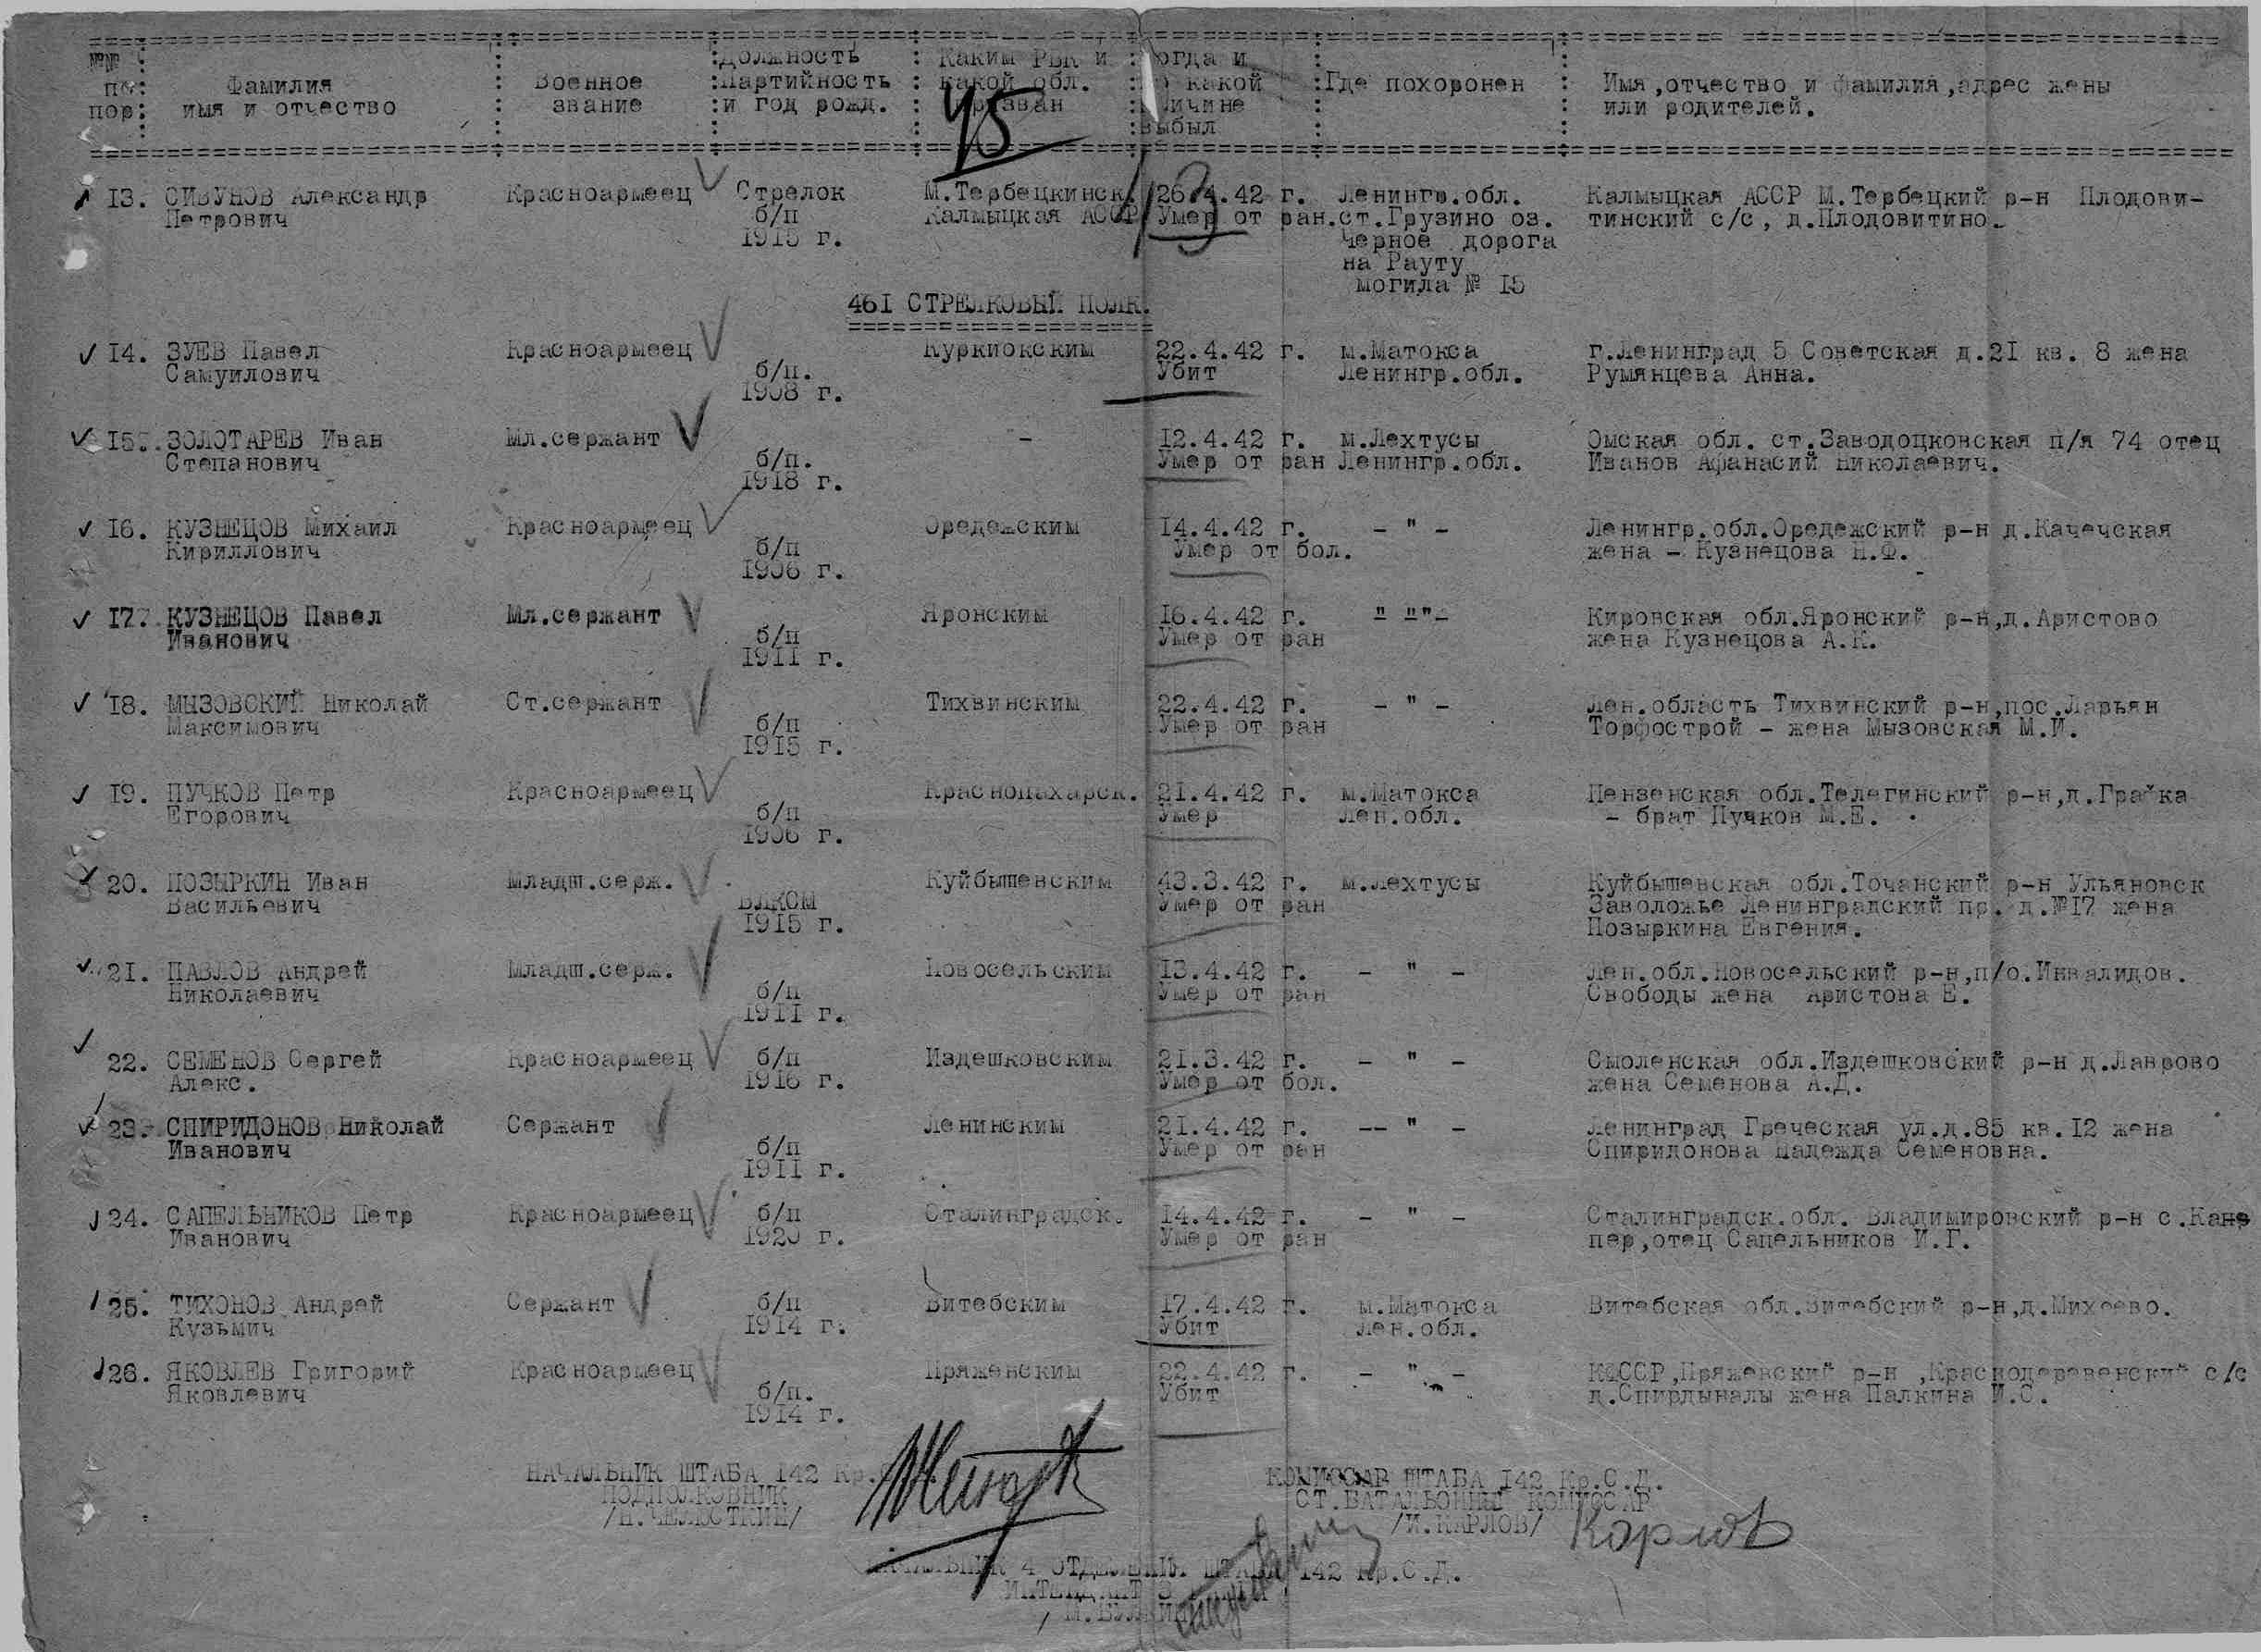 №№ по пор. Фамилия имя и отчество Военное звание Должность Партийность и год рожд. Каким РВК и какой обл. призван огда и какой ичине выбыл Где похоронен Имя, отчество и фамилия, адрес жены или родителей.
45
13. СИВУНОВ Александр Красноармеец Стрелок М.Тербецкинск. 26.4.42 г. Ленингр.обл. Калмыцкая АССР М.Тербецкий р-н Плодови-
Петрович б/п Калмыцкая АССР Умер от ран. ст.Грузино оз. тинский с/с, д.Плодовитино.
1915 г. Черное дорога
на Рауту
могила № 15
461 СТРЕЛКОВЫЙ ПОЛК.
14. ЗУЕВ Павел Красноармеец Куркиокским 22.4.42 г. м.Матокса г.Ленинград 5 Советская д.21 кв. 8 жена
Самуилович б/п. Убит Ленингр.обл. Румянцева Анна.
1908 г.
15. ЗОЛОТАРЕВ Иван Мл.сержант - 12.4.42 г. м.Лехтусы Омская обл. ст.Заводоцковская п/я 74 отец
Степанович б/п. Умер от ран Ленингр.обл. Иванов Афанасий Николаевич.
1918 г.
16. КУЗНЕЦОВ Михаил Красноармеец Оредежским 14.4.42 г. - " - Ленингр.обл.Оредежский р-н д.Качечская
Кириллович б/п Умер от бол. жена - Кузнецова Н.Ф.
1906 г.
17. КУЗНЕЦОВ Павел Мл.сержант Яронским 16.4.42 г. " ""- Кировская обл.Яронский р-н,д.Аристово
Иванович б/п Умер от ран жена Кузнецова А.К.
1911 г.
18. МЫЗОВСКИЙ Николай Ст.сержант Тихвинским 22.4.42 г. - " - Лен.область Тихвинский р-н,пос.Ларьян
Максимович б/п Умер от ран Торфострой - жена Мызовская М.И.
1915 г.
19. ПУЧКОВ Петр Красноармеец Краснопахарск. 21.4.42 г. м.Матокса Пензенская обл.Телегинский р-н,д.Грачка
Егорович б/п Умер Лен.обл. - брат Пучков М.Е.
1906 г.
20. ПОЗЫРКИН Иван Младш.серж. Куйбышевским 43.3.42 г. м.Лехтусы Куйбышевская обл.Точанский р-н Ульяновск
Васильевич ВЛКСМ Умер от ран Заволожье Ленинградский пр. д.№17 жена
1915 г. Позыркина Евгения.
21. ПАВЛОВ Андрей Младш.серж. Новосельским 13.4.42 г. - " - Лен.обл.Новосельский р-н,п/о.Инвалидов.
Николаевич б/п Умер от ран Свободы жена Аристова Е.
1911 г.
22. СЕМЕНОВ Сергей Красноармеец б/п Издешковским 21.3.42 г. - " - Смоленская обл.Издешковский р-н д.Лаврово
Алекс. 1916 г. Умер от бол. жена Семенова А.Д.
23. СПИРИДОНОВ Николай Сержант Ленинским 21.4.42 г. -- " - Ленинград Греческая ул.д.85 кв.12 жена
Иванович б/п Умер от ран Спиридонова Надежда Семеновна.
1911 г.
24. САПЕЛЬНИКОВ Петр Красноармеец б/п Сталинградск. 14.4.42 г. - " - Сталинградск.обл. Владимировский р-н с.Кане
Иванович 1920 г. Умер от ран пер,отец Сапельников И.Г.
25. ТИХОНОВ Андрей Сержант б/п Витебским 17.4.42 г. м.Матокса Витебская обл.Витебский р-н,д.Михеево.
Кузьмич 1914 г. Убит Лен.обл.
26. ЯКОВЛЕВ Григорий Красноармеец Пряженским 22.4.42 г. - " - КФССР,Пряжевский р-н ,Краснодеревенский с/с
Яковлевич б/п. Убит д.Спирдыналы жена Палкина И.С.
1914 г.
НАЧАЛЬНИК ШТАБА 142 Кр. КОМИССАР ШТАБА 142 Кр.С.Д.
ПОДПОЛКОВНИК СТ.БАТАЛЬОННЫЙ КОМИССАР
/Н.ЧЕЛЮСТКИН/ /И.КАРЛОВ/ Карлов
НАЧАЛЬНИК 4 ОТДЕЛЕНИЯ ШТАБА 142 Кр.С.Д.
ИНТЕНДАНТ 3